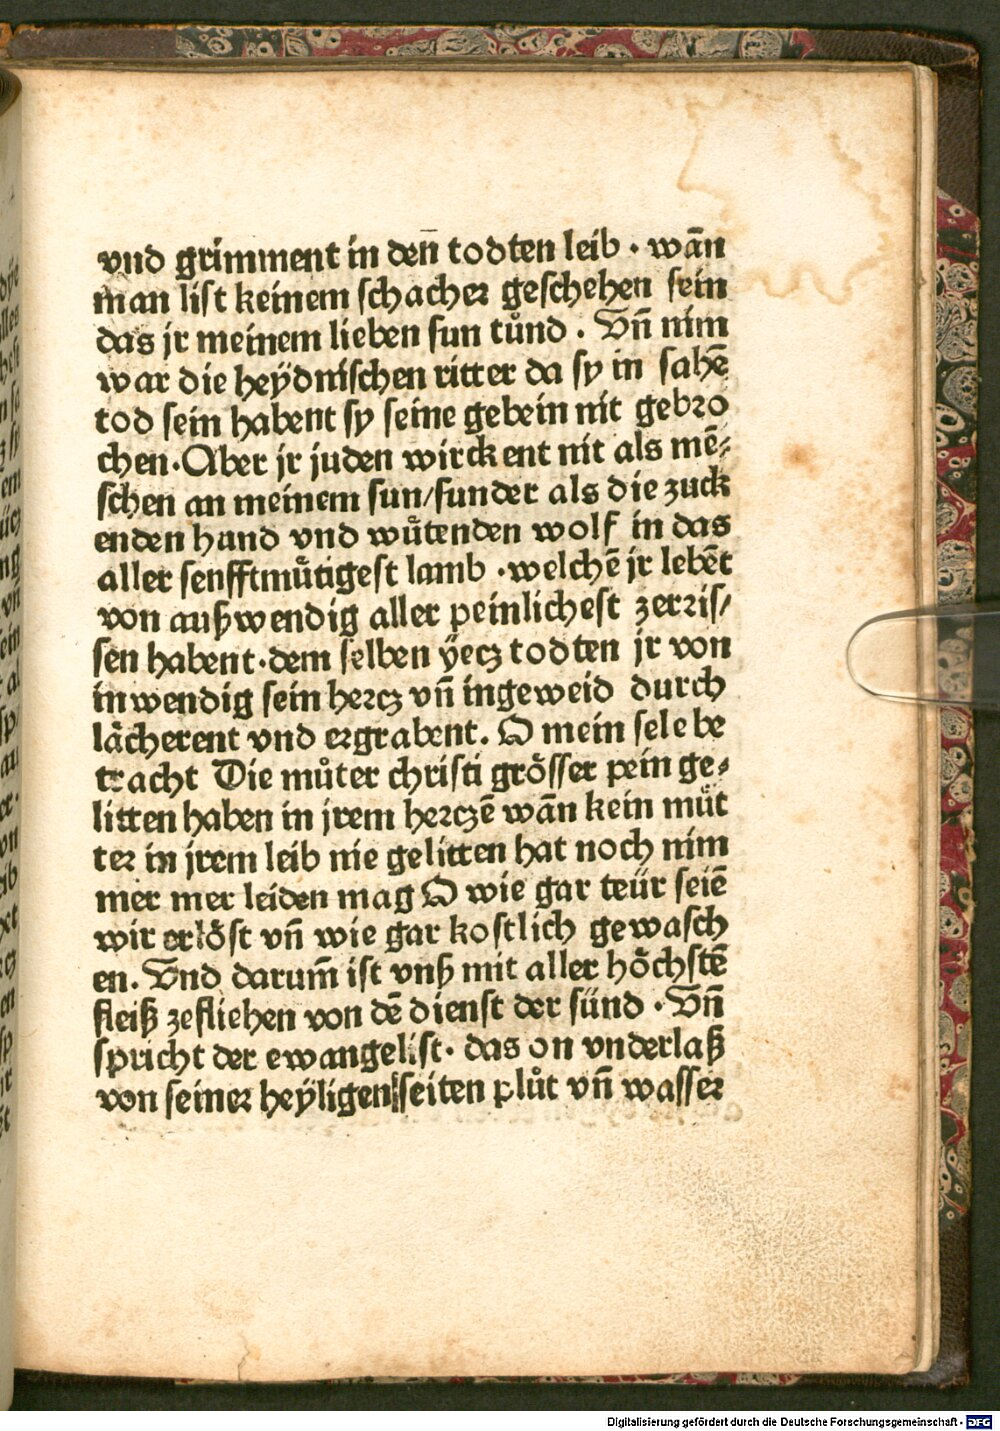 vnd grimment in den̄ todten leib · wān
man list keinem schacher geschehen sein
das jr meinem lieben sun tůnd . Vn̄ nim
war die heÿdnischen ritter da sy in sahē
tod sein habent sy seine gebein nit gebro
chen · Aber jr juden wirckent nit als mē⸗
schen an meinem sun/sunder als die zuck
enden hund vnd wůtenden wolf in das
aller senfftmůtigest lamb · welchē jr lebēt
von außwendig aller peinlichest zerris/
sen habent · dem selben ÿecz todten jr von
inwendig sein hercz vn̄ ingeweid durch
lächerent vnd ergrabent. O mein sele be
tracht Die můter christi grösser pein ge⸗
litten haben in jrem herczē wān kein můt
ter in jrem leib nie gelitten hat noch nim
mer mer leiden mag O wie gar teür seiē
wir erlöst vn̄ wie gar kostlich gewasch
en. Vnd darum̄ ist vnß mit aller höchstē
fleiß zefliehen von dē dienst der sünd · Vn̄
spricht der ewangelist · das on vnderlaß
von seiner heÿligen seiten plůt vn̄ wasser
Digitalisierung gefördert durch die Deutsche Forschungsgemeinschaft - DFG